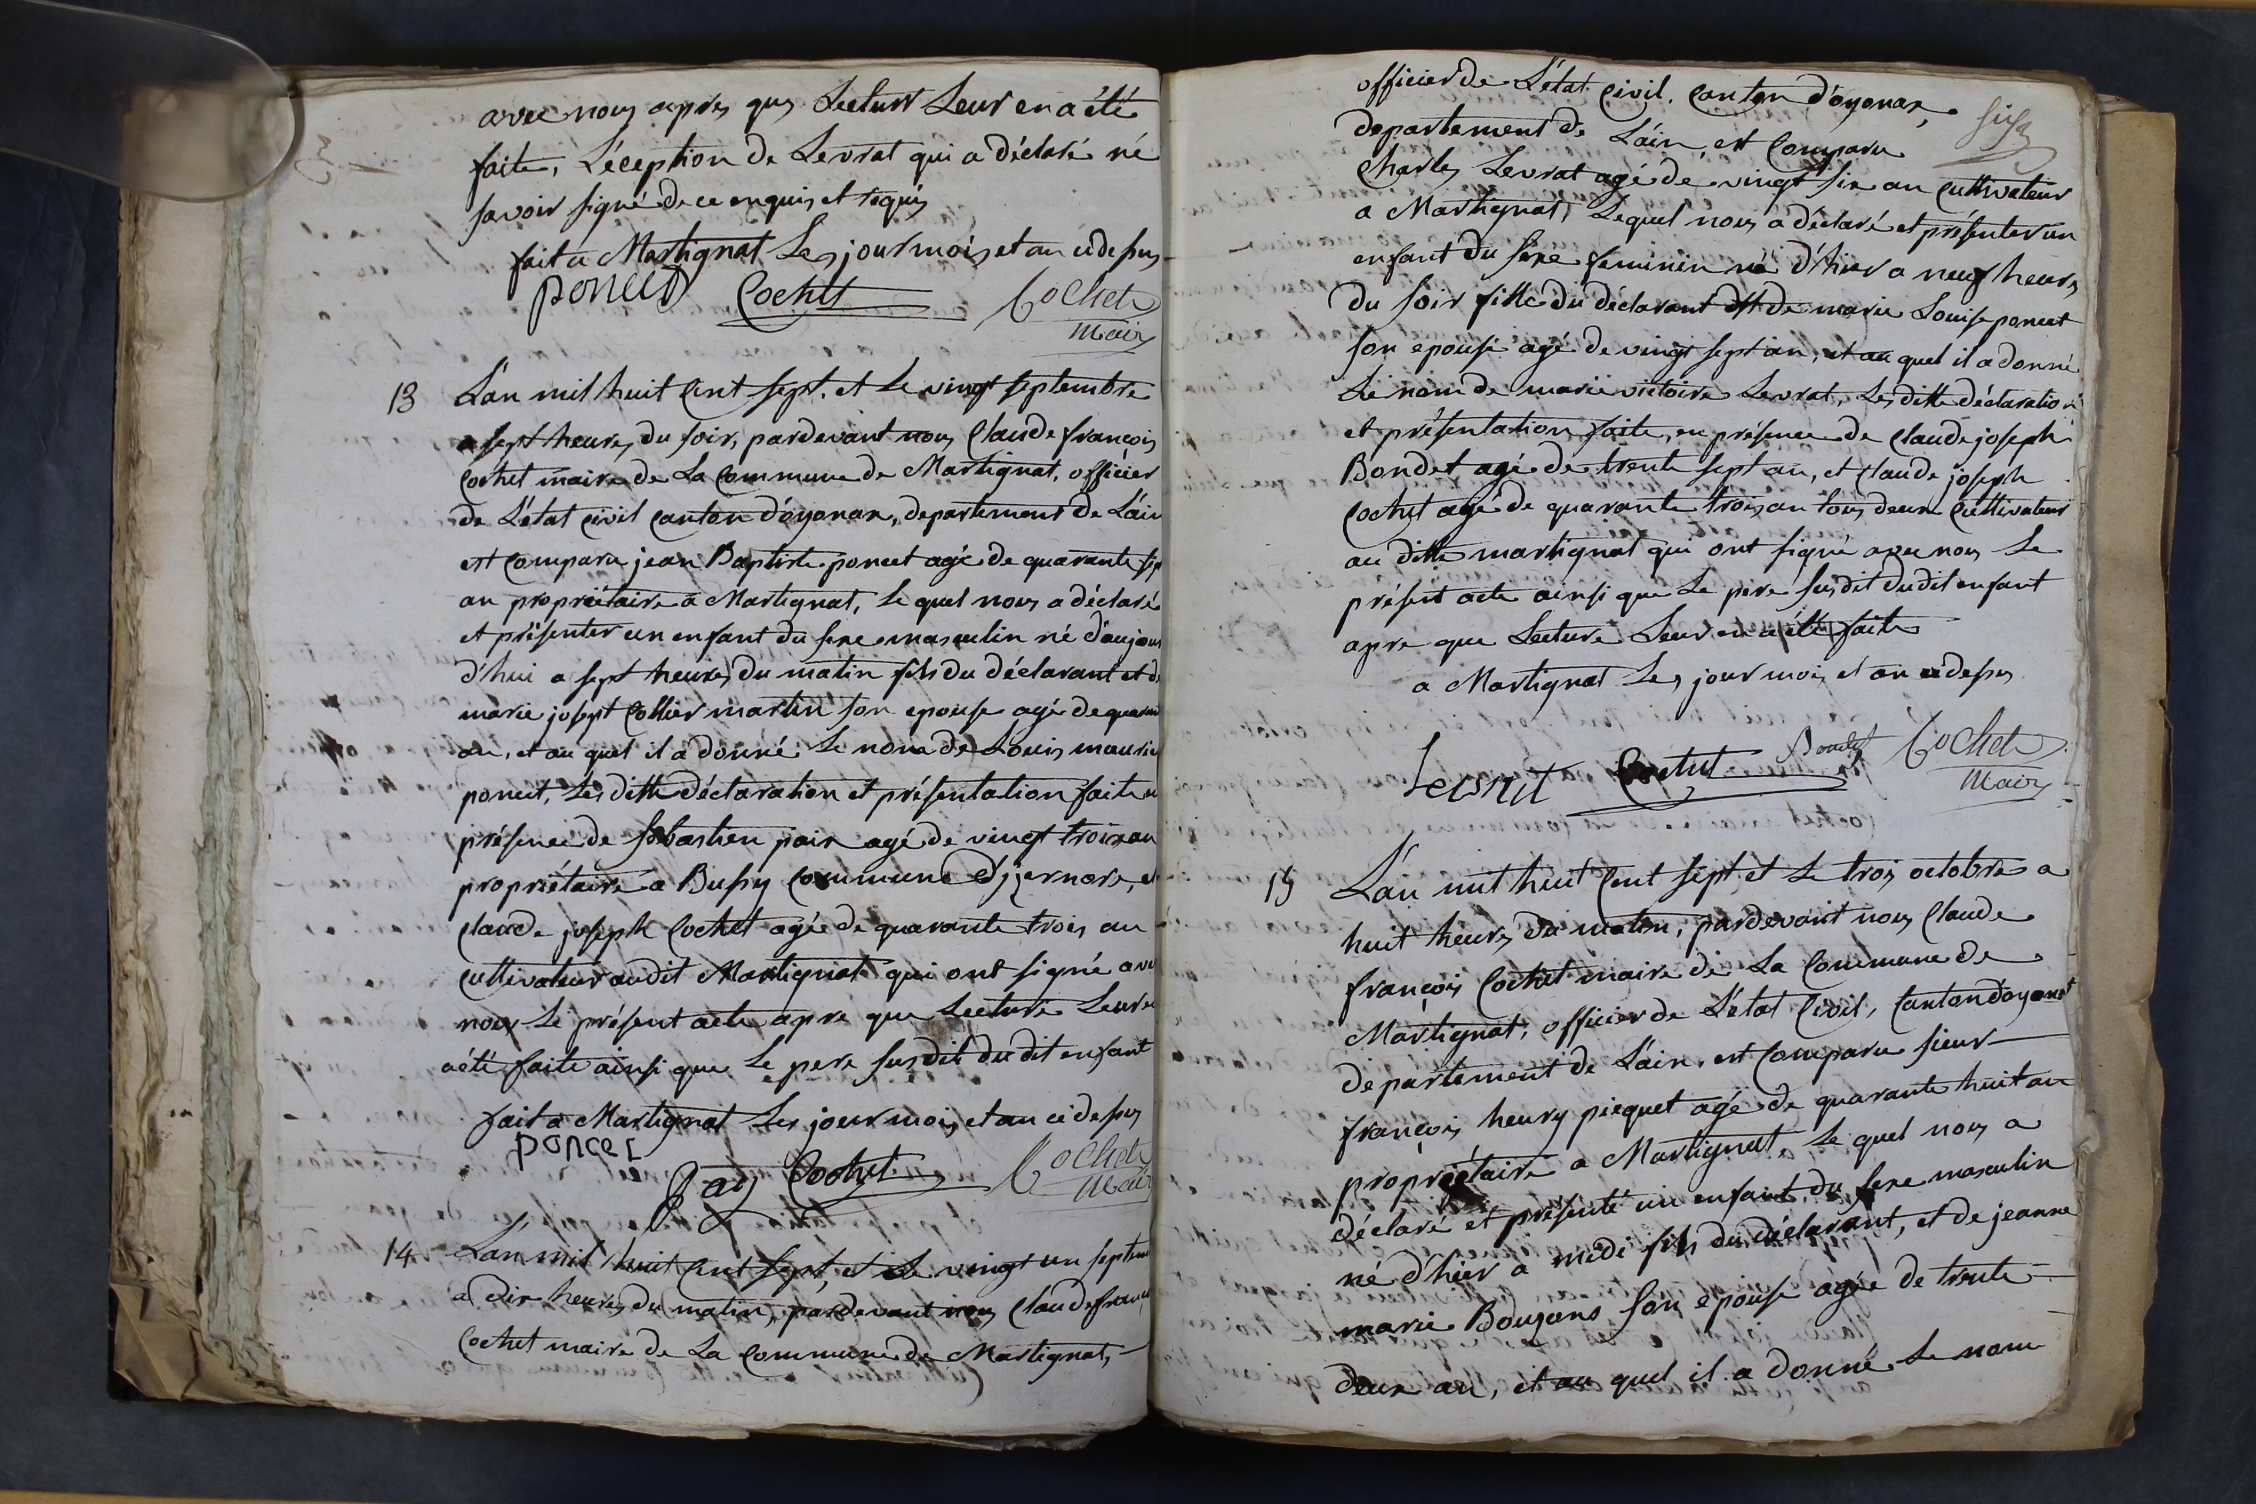 avec nous apres que Lecture Leur en a été
faite, L'éception de Levrat qui a déclaré né
savoir signé de ce enquis et requis
fait a Martignat Les jour mois et an ci dessus
poncet Cochet Cochet
Maire
13 L'an mil huit Cent sept, et Le vingt septembre
a sept heures du soir, pardevant nous Claude françois
Cochet maire de La Commune de Martignat, officier
de L'état Civil Canton d'oyonax, departement de L'ain
est Comparu jean Baptiste poncet agé de quarante sept
an propriétaire a Martignat, Le quel nous a déclaré
et présenter un enfant du sexe masculin né d'aujour
d'hui a sept heures du matin fils du déclarant et de
marie josept Collier martin son epouse agé de quarante
an, et au quel il a donné Le nom de Louis maurice
poncet, Les ditte déclaration et présentation faite en
présence de sébastien paix agé de vingt trois an
propriétaire a Bussy Commune d'jzernore, et
Claude joseph Cochet agé de quarante trois an
Cultivateur audit Martignat qui ont signé avec
nous Le présent acte apre que Lecture Leur en
a été faite ainsi que Le pere susdit dudit enfant
fait a Martignat Les jour mois et an ci dessus
poncet
Cochet Cochet
Maire
14 L'an mil huit Cent sept, et Le vingt un septembre
a dix heures du matin, pardevant nous Claude françois
Cochet maire de La Commune de Martignat,
officier de L'état Civil. Canton d'oyonax,
departement de L'ain, est Comparu
Charles Levrat agé de vingt six an Cultivateur
a Martignat, Lequel nous a déclaré et présenter un
enfant du sexe feminin né d'hier a neuf heures
du soir fille du déclarant et de marie Louise poncet
son epouse agé de vingt sept an, et au quel il a donné
Le nom de marie victoire Levrat, Les ditte déclaration
et présentation faite, en présence de Claude joseph
Bondet agé de trente sept an, et Claude joseph
Cochet agé de quarante trois an tous deux Cultivateur
au ditte martignat qui ont signé avec nous Le
présent acte ainsi que Le pere susdit dudit enfant
apre que Lecture Leur en a été faite
a Martignat Les jour mois et an ci dessus
Levrat Cochet Bondet Cochet
Maire
15 L'an mil huit Cent sept et Le trois octobre a
huit heures du matin, pardevant nous Claude
françois Cochet maire de La Commune de
Martignat, officier de L'état Civil, Canton doyonax
departement de L'ain, est Comparu sieur
françois henry picquet agé de quarante huit an
propriétaire a Martignat, Le quel nous a
déclaré et présenté un enfant du sexe masculin
né d'hier a midi fils du déclarant, et de jeanne
marie Bouzons son epouse agée de trente
deux an, et au quel il a donné Le nom